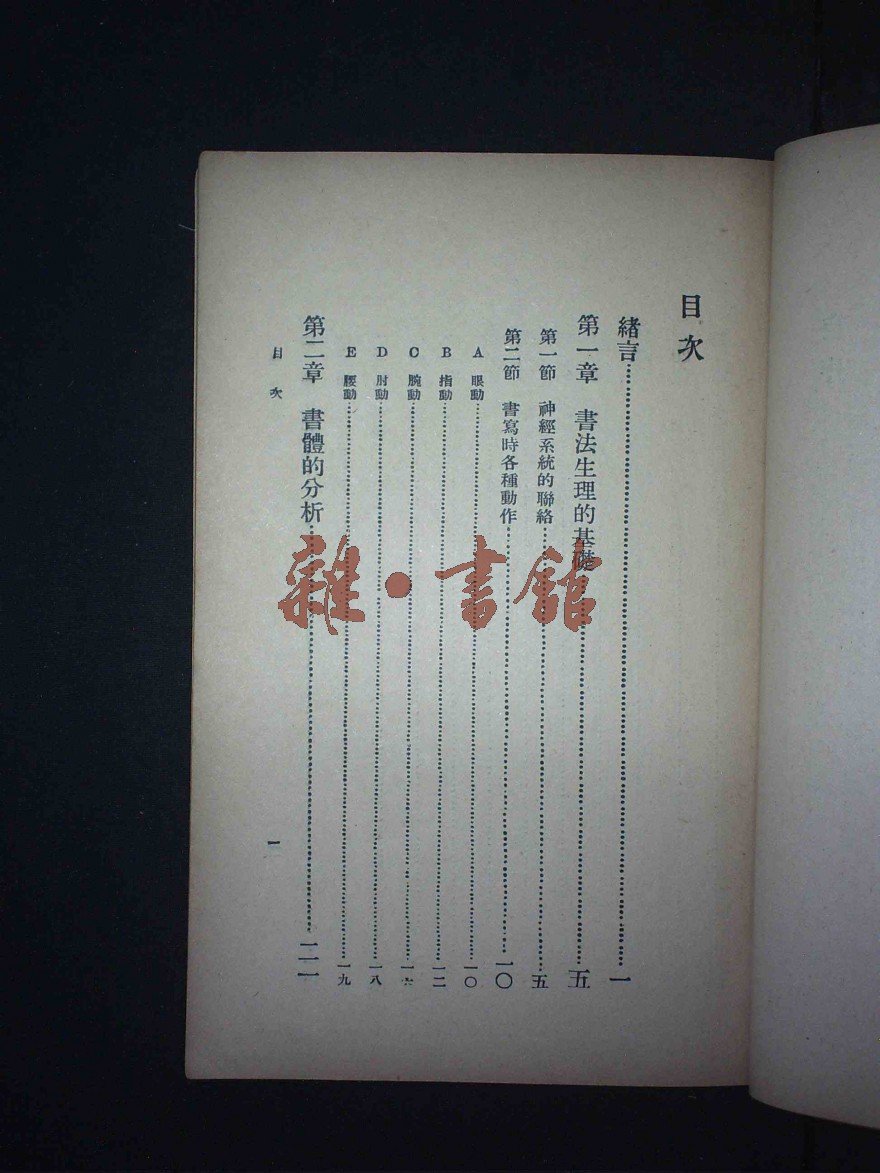 目次
緒言……一
第一章　書法生理的基礎……五
第一節　神經系統的聯絡……五
第二節　書寫時各種動作……一〇
A　眼動……一〇
B　指動……一二
C　腕動……一六
D　肘動……一八
E　腰動……一九
第二章　書體的分析……二一
目次　一
雜·書館